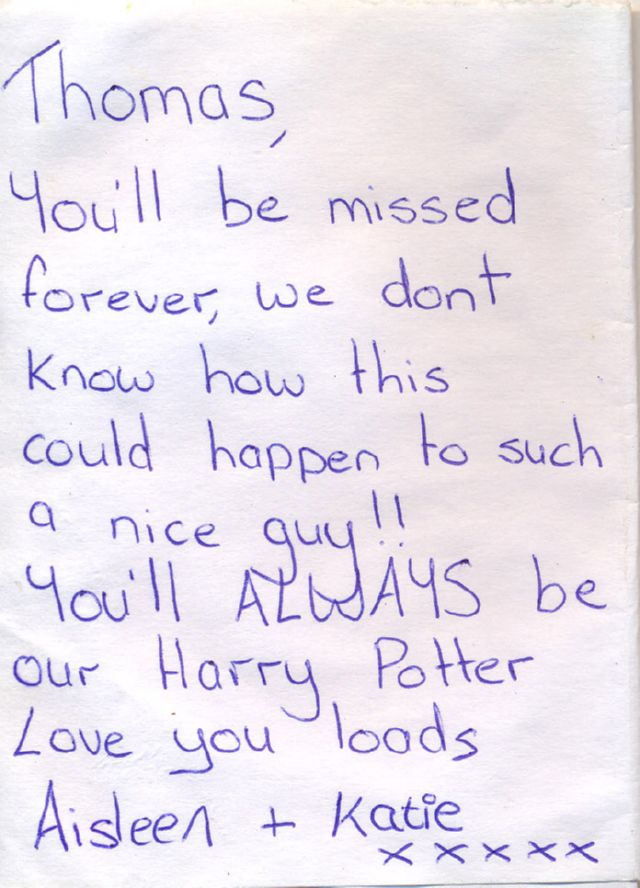 Thomas,
You'll be missed
forever, we dont
know how this
could happen to such
a nice guy!!
You'll ALWAYS be
our Harry Potter
Love you loads
Aisleen + Katie
x x x x x